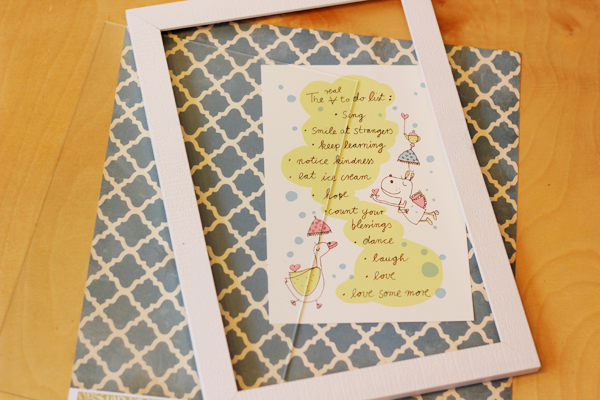 The real to do list :
• Sing
• Smile at strangers
• keep learning
• notice kindness
• eat ice cream
• hope
• count your
blessings
• dance
• laugh
• love
• love some more